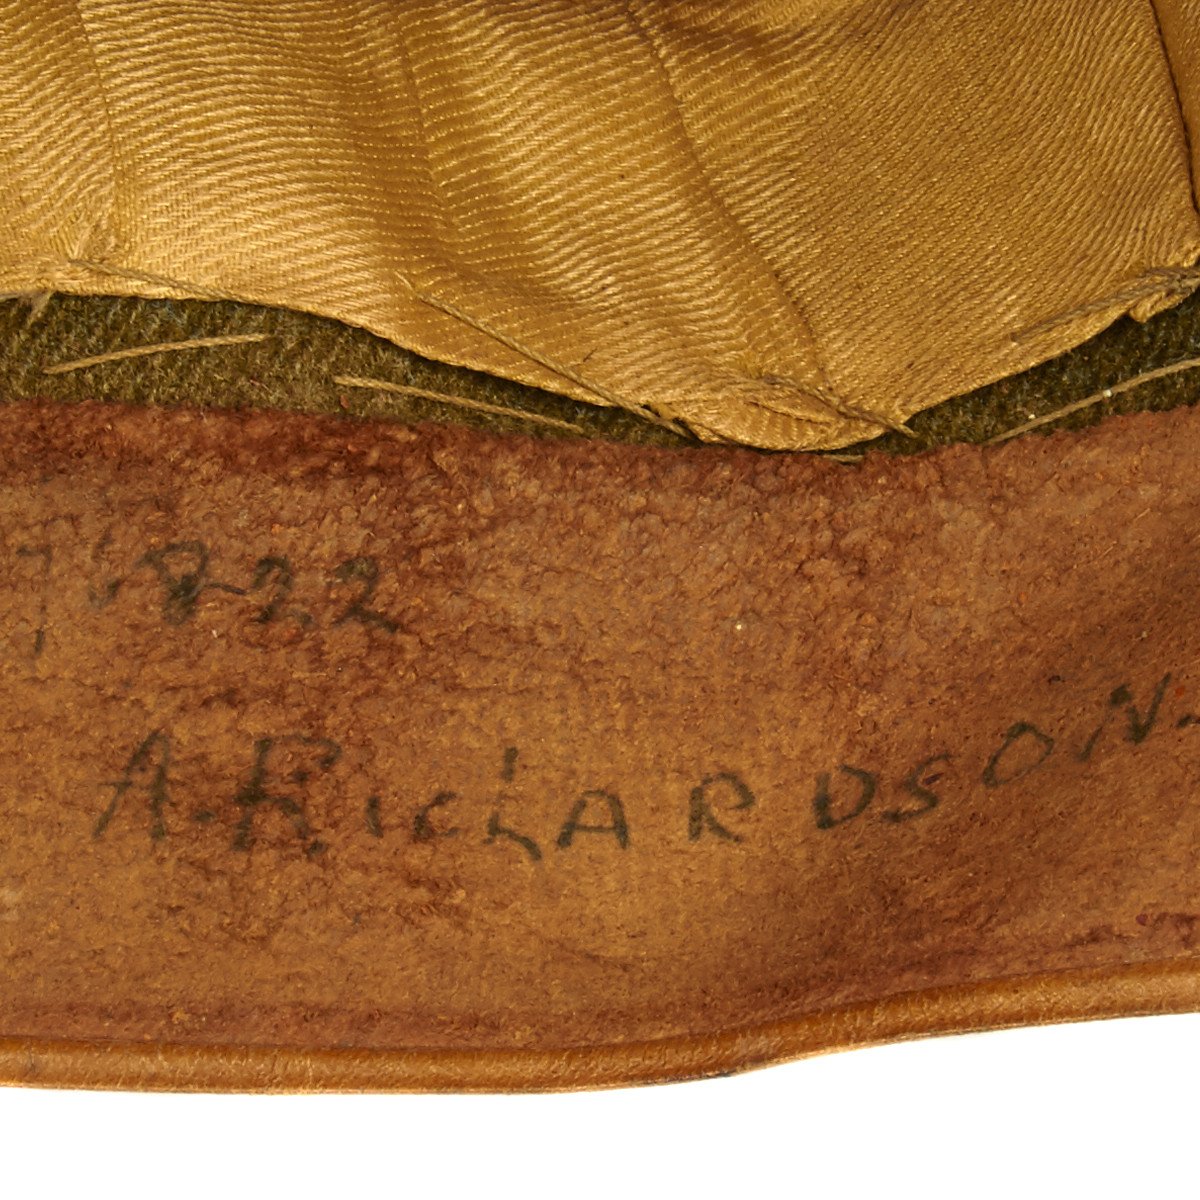 7 822
A. RICHARDSON.